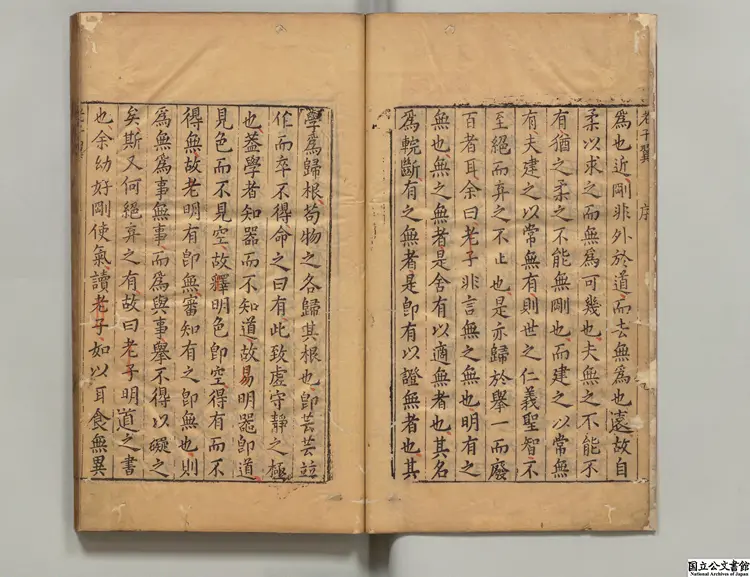 老子翼 序
爲也近剛非外於道而去無爲也遠故自
柔以求之而無爲可幾也夫無之不能不
有猶之柔之不能無剛也而建之以常無
有夫建之以常無有則世之仁義聖智不
至絕而弃之不止也是亦歸於舉一而廢
百者耳余曰老子非言無之無也明有之
無也無之無者是舍有以適無者也其名
爲輐斷有之無者是卽有以證無者也其
學爲歸根苟物之各歸其根也卽芸芸竝
作而卒不得命之曰有此致虛守靜之極
也葢學者知器而不知道故易明器卽道
見色而不見空故釋明色卽空得有而不
得無故老明有卽無審知有之卽無也則
爲無爲事無事而爲與事舉不得以礙之
矣斯又何絕弃之有故曰老子明道之書
也余幼好剛使氣讀老子如以耳食無異
国立公文書館
National Archives of Japan